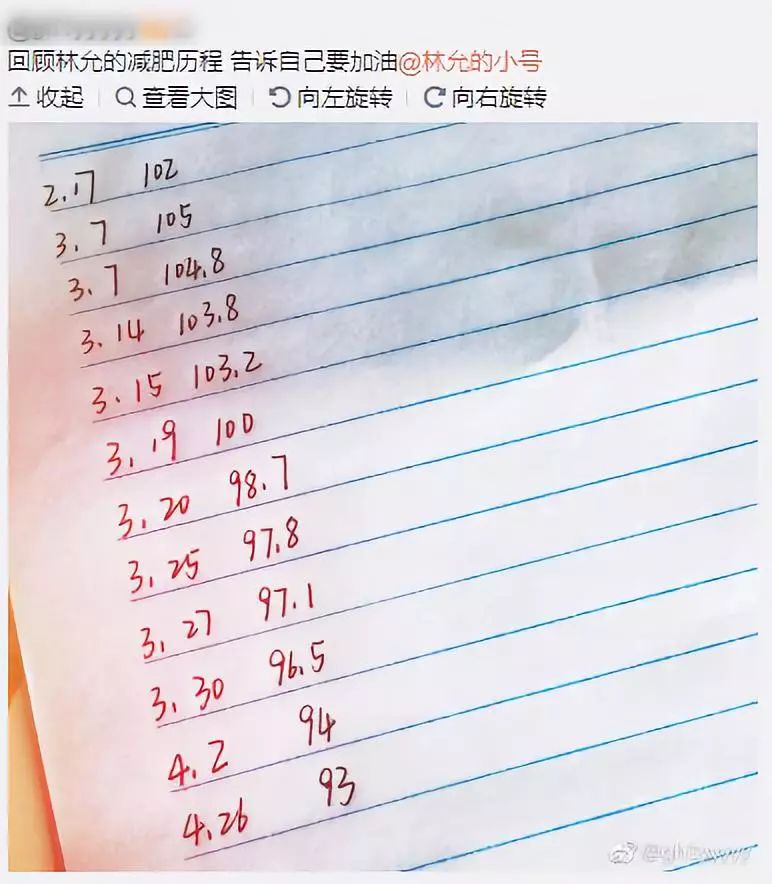 回顾林允的减肥历程 告诉自己要加油@林允的小号
收起 查看大图 向左旋转 向右旋转
2.17 102
3.7 105
3.7 104.8
3.14 103.8
3.15 103.2
3.19 100
3.20 98.7
3.25 97.8
3.27 97.1
3.30 96.5
4.2 94
4.26 93